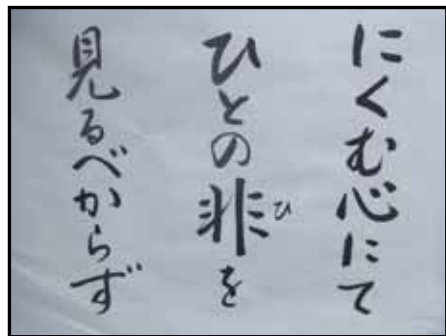 にくむ心にて
ひとの非を
見るべからず